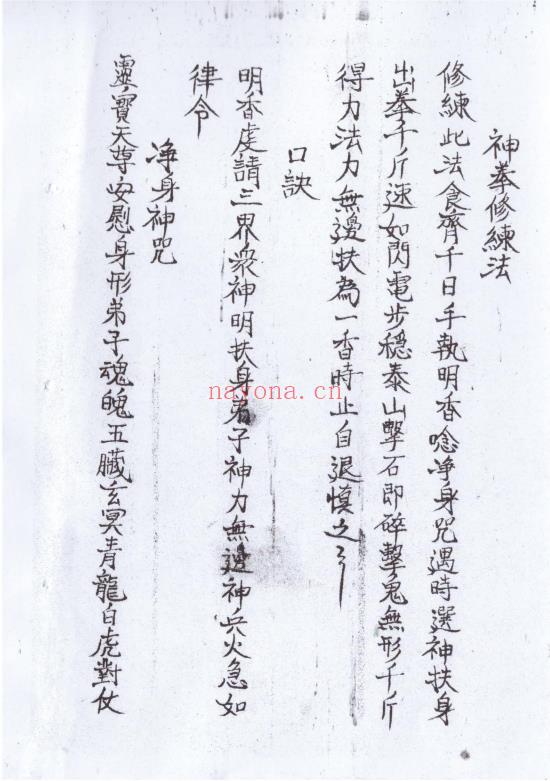 神拳修練法
修練此法食齋千日手執明香唸净身咒遇時選神扶身
出拳千斤速如閃電步穩泰山擊石即碎擊鬼無形千斤
得力法力無邊扶為一香時止自退慎之
口訣
明香虔請三界衆神明扶身弟子神力無邊神兵火急如
律令
净身神咒
靈寶天尊安慰身形弟子魂魄五臟玄冥青龍白虎對仗
nayona.cn